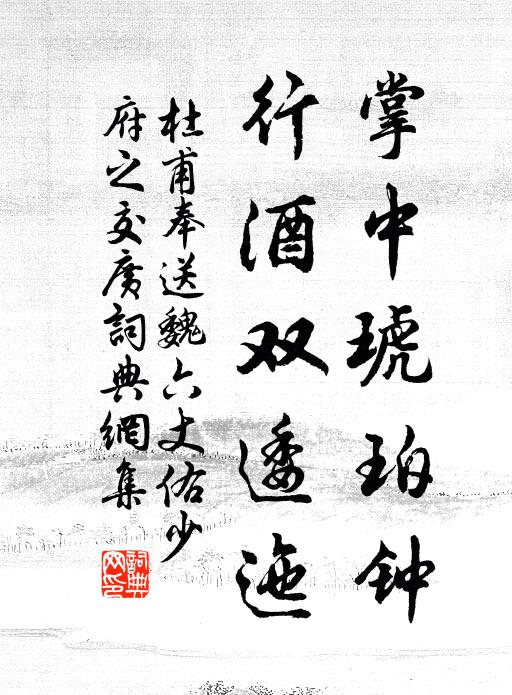 掌中琥珀钟
行酒双逶迤
杜甫奉送魏六丈佑少
府之交广詞典網集
詞典
网印